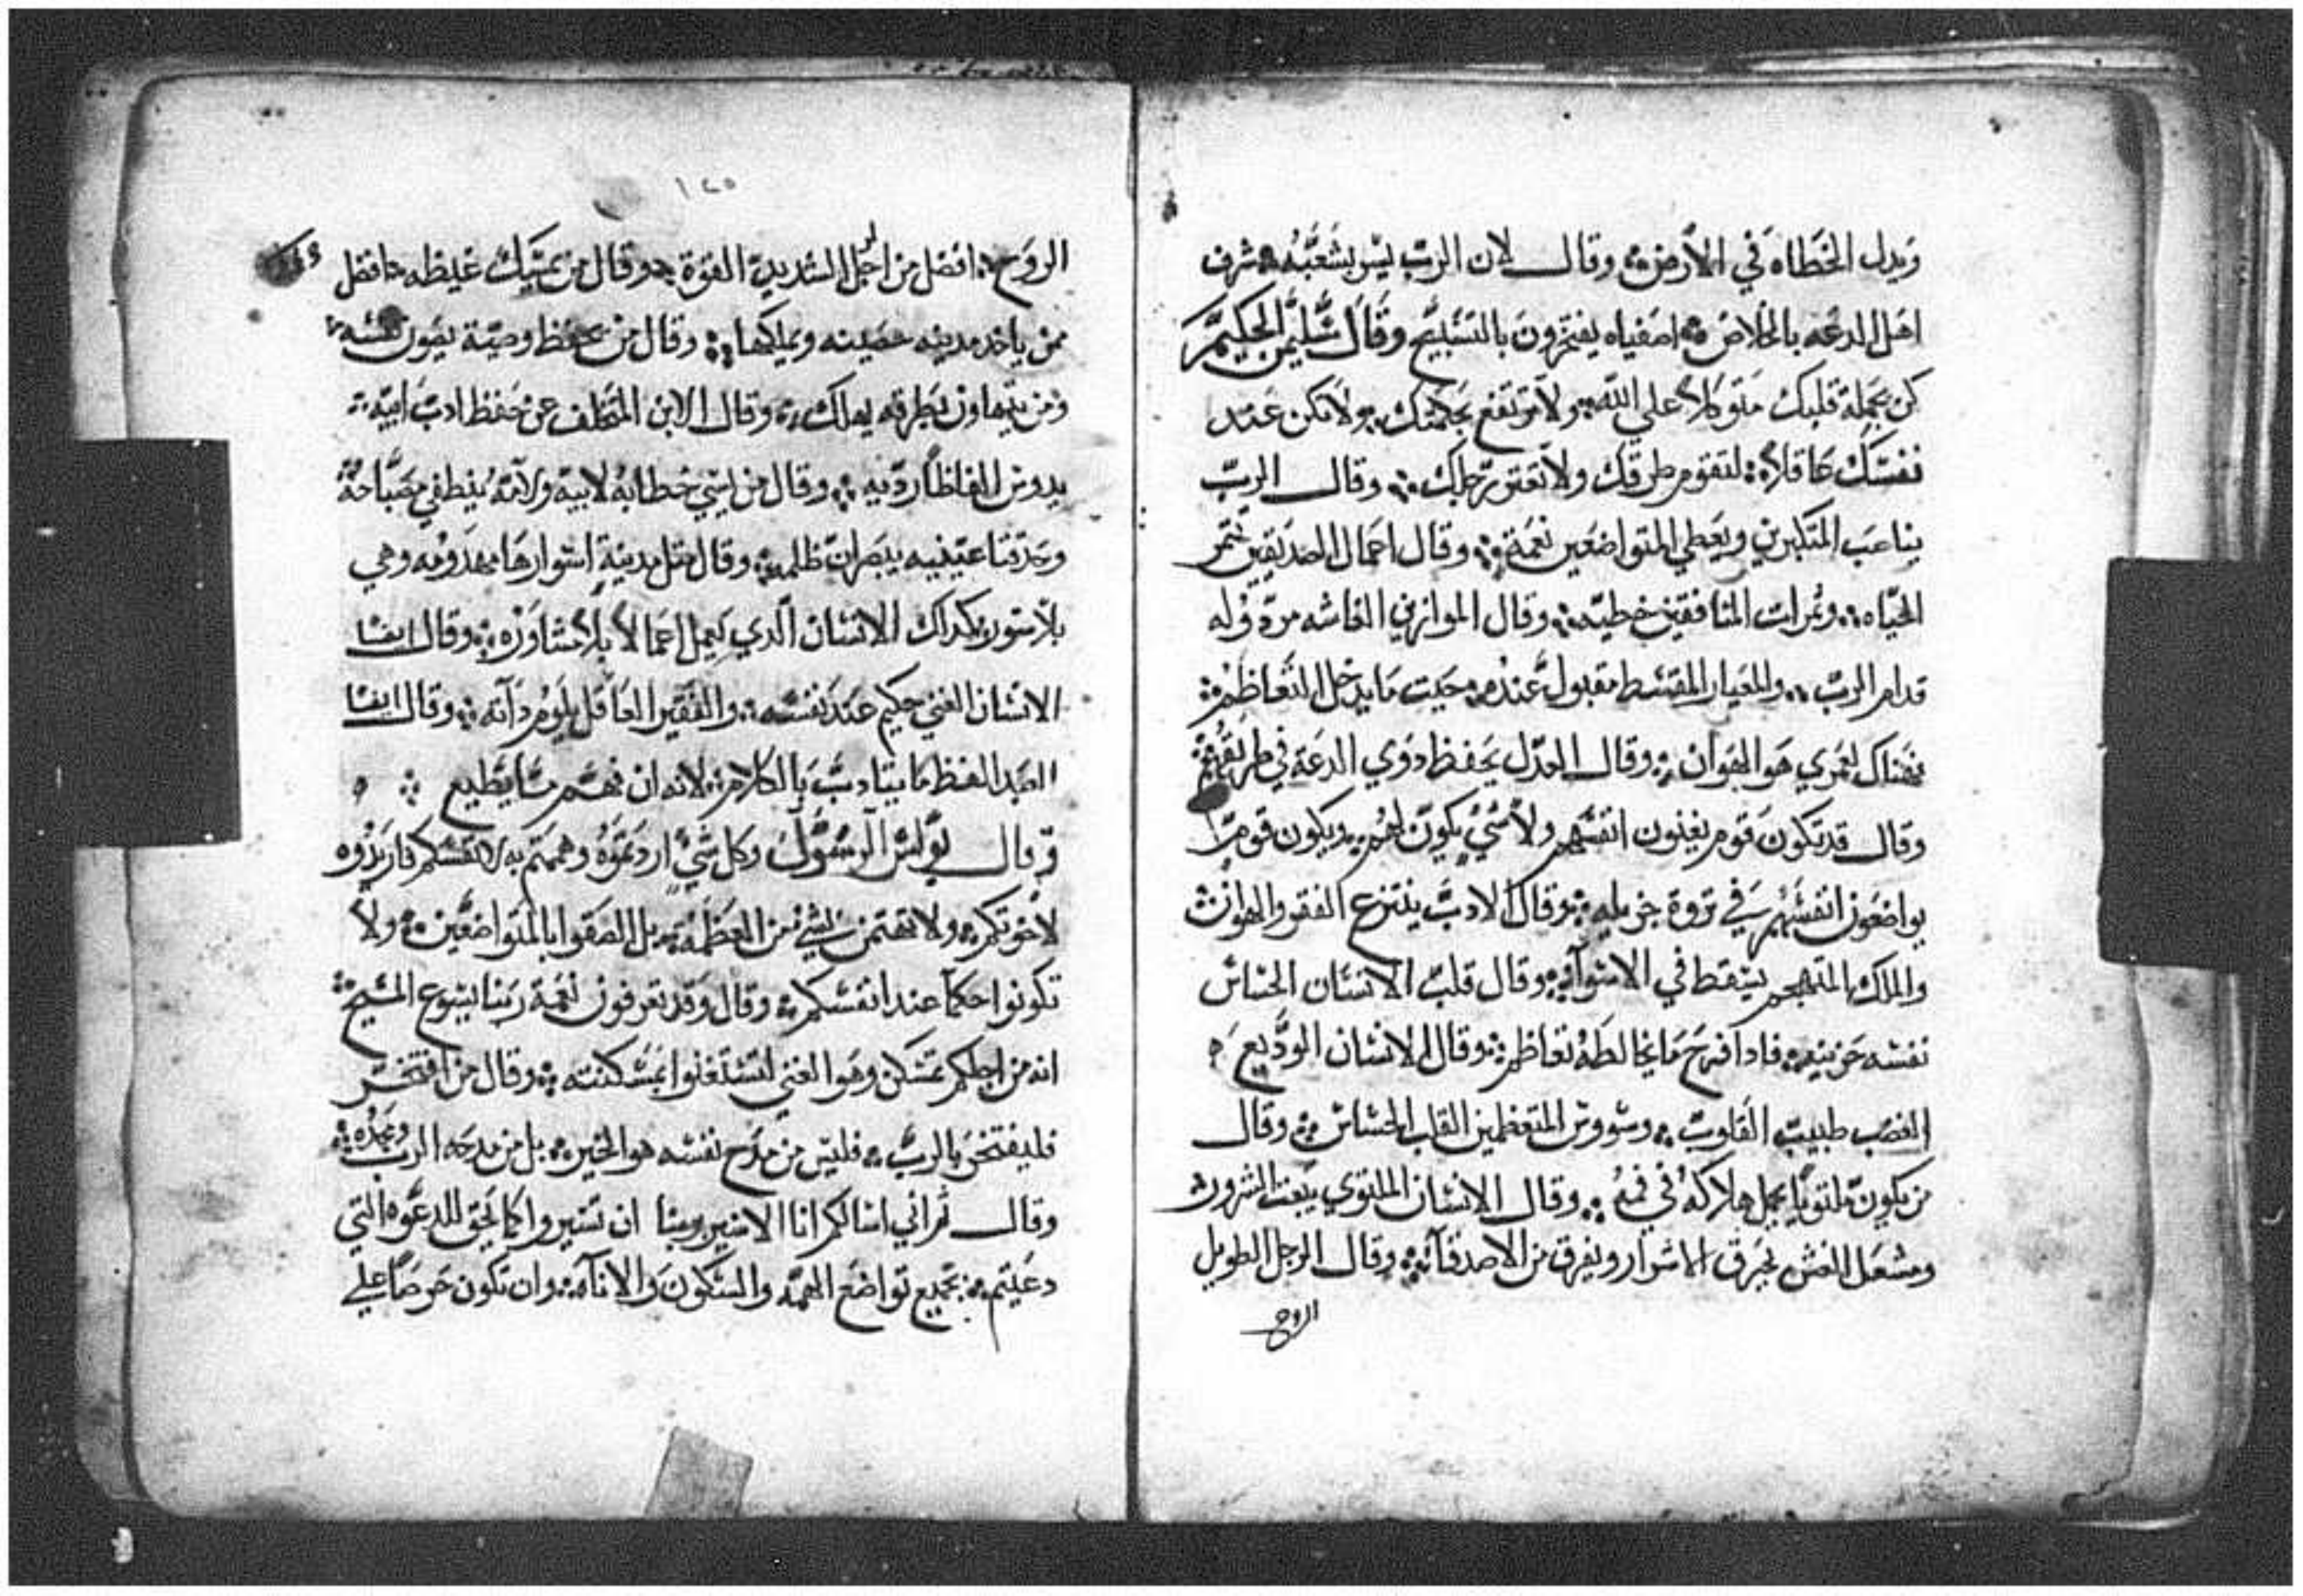 ويدل الخطاه في الارض وقال لان الرب يسر بشعبه شرف
اهل الدعه بالخلاص اصفياه يفتخرون بالتسبيح وقال سليمن الحكيم
كن بجملة قلبك متوكلاً علي الله ولا ترتفع بحكمتك ولا تكن عند
نفسك عاقلاً لتقوم طرقك ولا تعتور رجلك وقال الرب
يناصب المتكبرين ويعطي المتواضعين نعمة وقال اعمال الصديقين تثمر
الحياه وثمرات المنافقين خطيه وقال الموازين الغاشه مردوله
قدام الرب والمعيار المقسط مقبول عنده حيت ما يدخل التعاظم
فهناك لعمري هو الهوان وقال العدل يحفظ دوي الدعة في طريقهم
وقال قد تكون قوم يغنون انفسهم ولا شي يكون لهم ويكون قوم
يواضعون انفسهم في تروة جزيله وقال الادب ينتزع الفقر والهوان
والملاك المتهجم يسقط في الاسوآ وقال قلب الانسان الحساس
نفسه حزينه فادا فرح ما يخالطه تعاظم وقال الانسان الوديع
الغضب طبيب القلوب وسووس المتعظمين القلب الحساس وقال
من يكون ملتوياً يحمل هلاكه في فمه وقال الانسان الملتوي يبعت الشرور
ومشعل الغش يحرق الاشرار ويفرق من الاصدقآيه وقال الرجل الطويل
الروح
١٢٥
الروح افضل من الرجل الشديد القوة وقال من يمسك غيظه افضل
ممن ياخد مدينه حصينه ويملكها وقال من يحفظ وصية يصون نفسه
ومن يتهاون بطرقه يهلك وقال الابن المتخلف عن حفظ ادب ابيه
يدرس الفاظاً رديه وقال من يسي خطابه لابيه ولامه ينطفي مصباحه
وحدقتا عينيه يبصران ظلمه وقال متل مدينة اسوارها مهدومه وهي
بلا ستور كداك الانسان الدي يعمل اعمالاً بلا مشاوره وقال ايضا
الانسان الغني حكيم عند نفسه والفقير العاقل يلوم داته وقال ايضا
العبد الفظ ما يتادب بالكلام لانه ان فهم ما يطيع
وقال بولس الرسول وكل شي اردتموه وهممتم به لانفسكم فاريدوه
لاخوتكم ولا تهتمن بشي من العظمه بل الصقوا بالمتواضعين ولا
تكونوا حكمآ عند انفسكم وقال وقد تعرفون نعمة ربنا يسوع المسيح
انه من اجلكم تمسكن وهو الغني لتستغنوا بمسكنته وقال من افتخر
فليفتخر بالرب فليس من مدح نفسه هو الخير بل من مدحه الرب ومجده
وقال تم اني اسالكم انا الاسير بربنا ان تسيروا كما يحق للدعوه التي
دعيتم بجميع تواضع الهمه والسكون والاناه وان تكون حرصاً علي